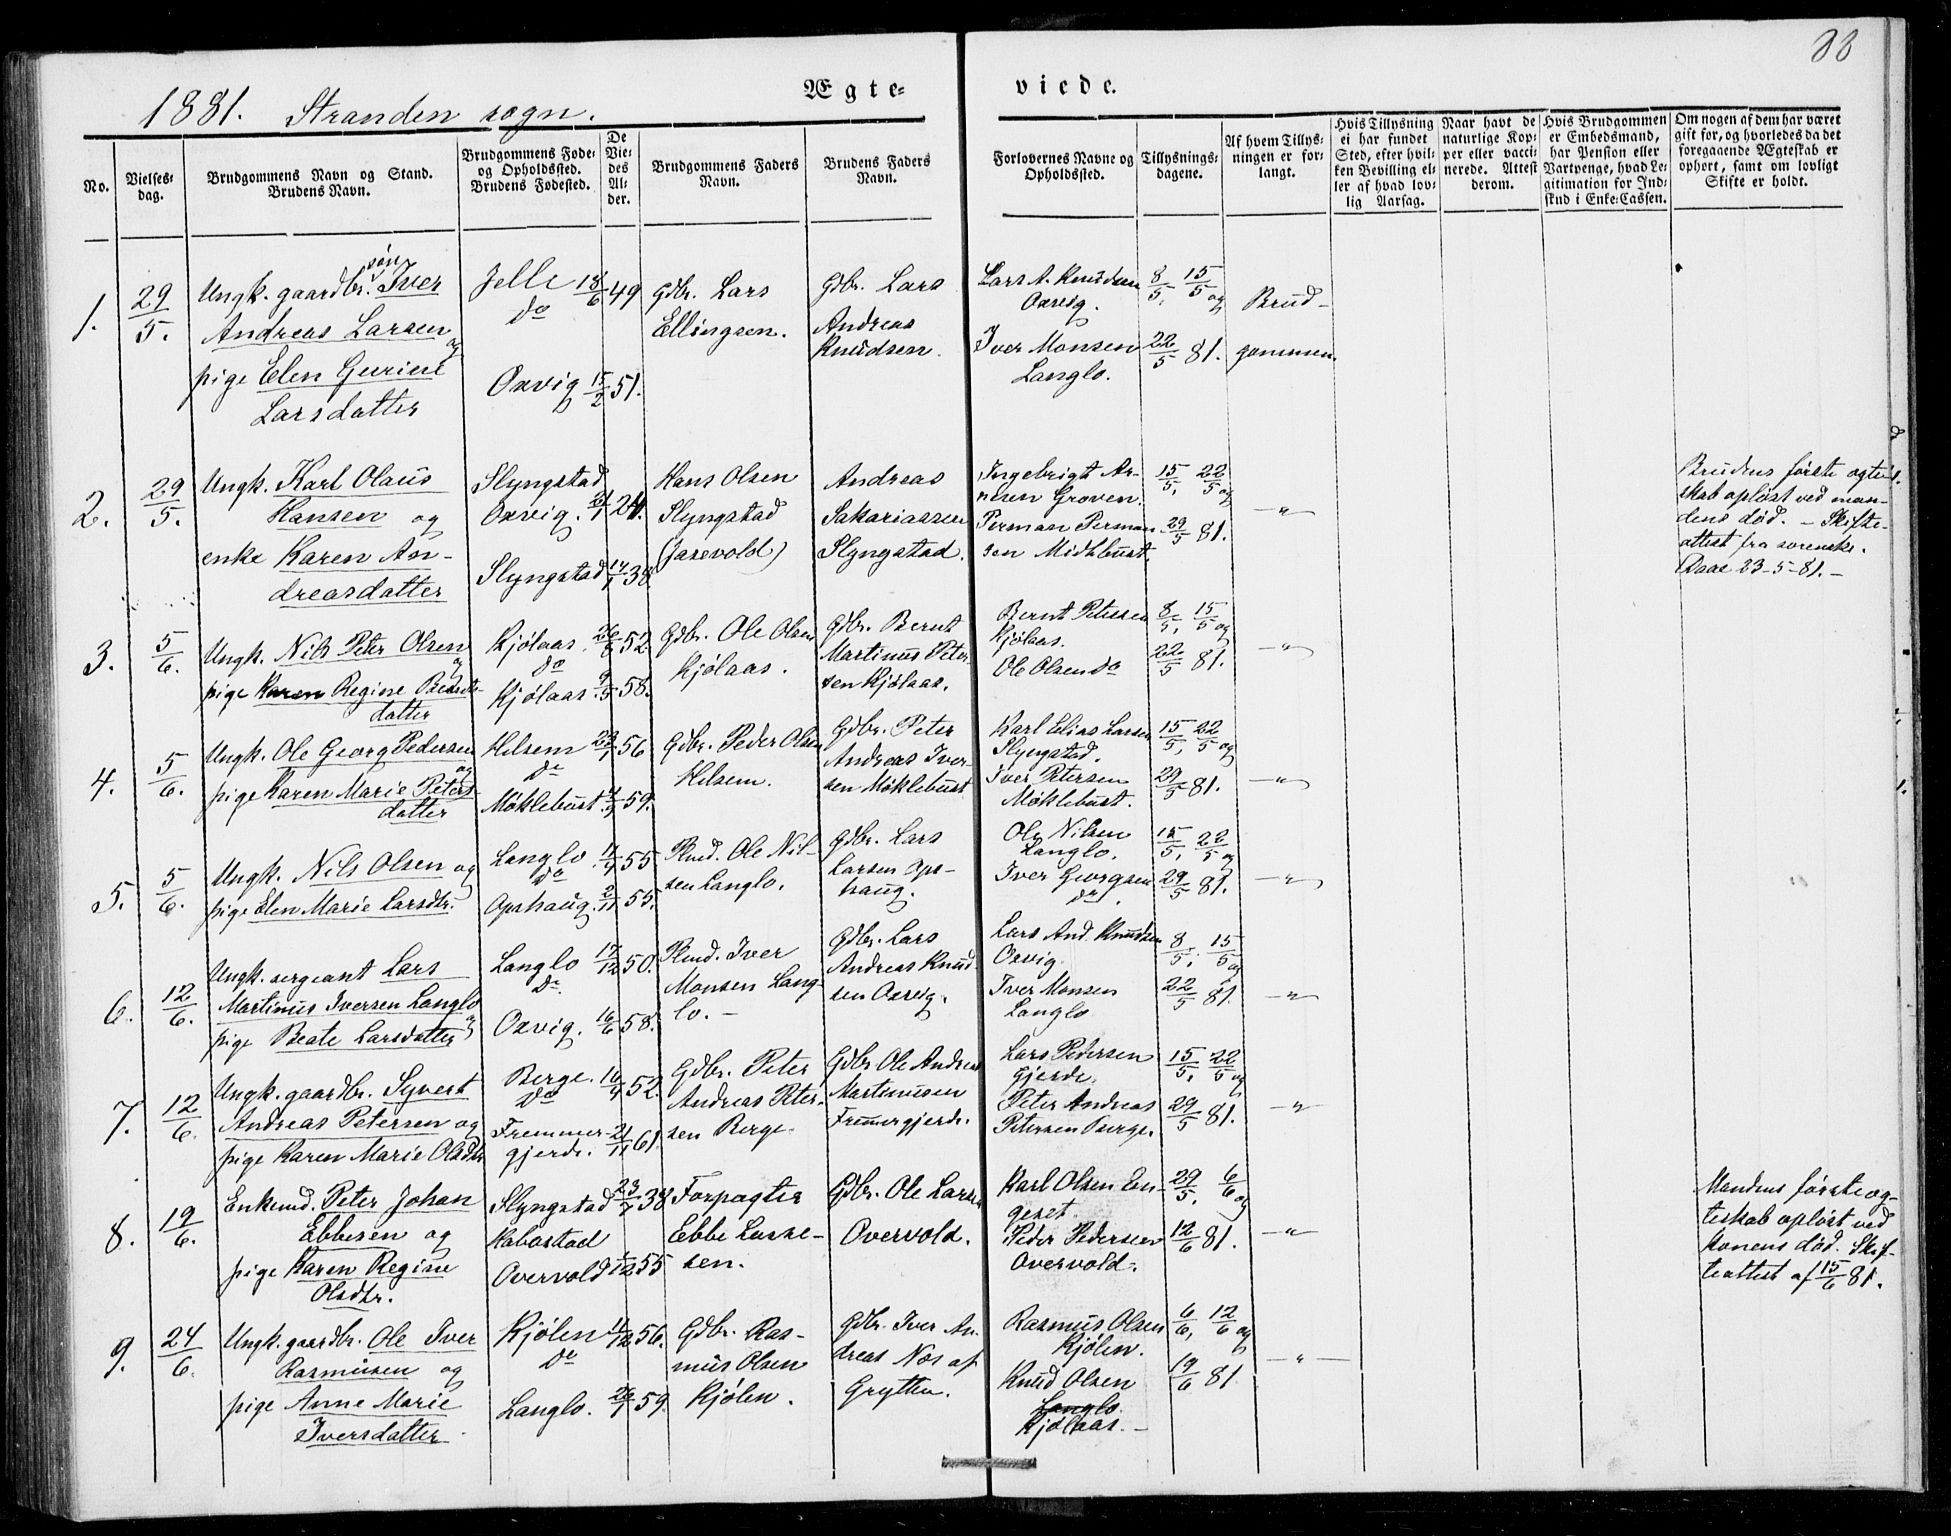 88
Ægte-
viede.
1881. Stranden sogn.
No.
Vielses-
dag.
Brudgommens Navn og Stand.
Brudens Navn.
Brudgommens Føde-
og Opholdssted.
Brudens Fødested.
De
Vie-
des
Al-
der.
Brudgommens Faders
Navn.
Brudens Faders
Navn.
Forlovernes Navne og
Opholdssted.
Tillysnings-
dagene.
Af hvem Tillys-
ningen er for-
langt.
Hvis Tillysning
ei har fundet
Sted, efter hvil-
ken Bevilling el-
ler af hvad lov-
lig Aarsag.
Naar havt de
naturlige Kop-
per eller vacci-
nerede. Attest
derom.
Hvis Brudgommen
er Embedsmand,
har Pension eller
Vartpenge, hvad Le-
gitimation for Ind-
skud i Enke-Cassen.
Om nogen af dem har været
gift før, og hvorledes da det
foregaaende Ægteskab er
ophørt, samt om lovligt
Skifte er holdt.
1.
29/5.
Ungk. gaardbr. søn Iver
Andreas Larsen og
pige Elen Gurine
Larsdatter
Jelle 18/6 49
do
Oxvig 15/2 51.
Gdbr. Lars
Ellingsen.
Gdbr. Lars
Andreas
Knudsen.
Lars A. Knudsen
Oxvig.
Iver Monsen
Langlo.
8/5, 15/5 og
22/5 81.
Brud-
gommen.
2.
29/5.
Ungk. Karl Olaus
Hansen og
enke Karen An-
dreasdatter
Slyngstad
Oxvig. 24.
Slyngstad 14/1 38.
Hans Olsen
Slyngstad
(Jarevold)
Andreas
Sakariassen
Slyngstad.
Ingebrigt Ar-
nesen Groven.
Perman Perman-
sen Midtbust.
15/5, 22/5 og
29/5 81.
-"-
Brudens første ægte-
skab opløst ved man-
dens død. - Skifte-
attest fra sorenskr.
Daae 23-5-81.-
3.
5/6.
Ungk. Nils Peter Olsen
og
pige Karen Regine Bernts-
datter
Kjølaas. 52.
do
Kjølaas. 9/5 58.
Gdbr. Ole Olsen
Kjølaas.
Gdbr. Bernt
Martinus Peter-
sen Kjølaas.
Bernt Petersen
Kjølaas.
Ole Olsen do
8/5, 15/5 og
22/5 81.
-"-
4.
5/6.
Ungk. Ole Georg Pedersen
og
pige Karen Marie Peters-
datter
Helsem 56
do
Møklebust. 59.
Gdbr. Peder Olsen
Helsem.
Gdbr. Peter
Andreas Iver-
sen Møklebust
Karl Elias Larsen
Slyngstad.
Iver Petersen
Møklebust.
15/5, 22/5 og
29/5 81.
-"-
5.
5/6.
Ungk. Nils Olsen og
pige Elen Marie Larsdtr.
Langlo 55
do
Opshaug. 2/11 55.
Hmd. Ole Nil-
sen Langlo.
Gdbr. Lars
Larsen Ops-
haug.
Ole Nilsen
Langlo.
Iver Georgsen
do.
15/5, 22/5 og
29/5 81.
-"-
6.
12/6.
Ungk. sergeant Lars
Martinus Iversen Langlo
og
pige Beate Larsdatter
Langlo 17/12 50.
do
Oxvig. 16/6 58.
Hmd. Iver
Monsen Lang-
lo. -
Gdbr. Lars
Andreas Knud-
sen Oxvig.
Lars And. Knudsen
Oxvig.
Iver Monsen
Langlo
8/5, 15/5 og
22/5 81.
-"-
7.
12/6.
Ungk. gaardbr. Syvert
Andreas Petersen og
pige Karen Marie Olsdtr.
Berge. 52.
do
Fremmer-
gjerde. 21/11 61.
Gdbr. Peter
Andreas Peter-
sen Berge.
Gdbr Ole Andreas
Martinusen
Fremmergjerde.
Lars Pedersen
Gjerde.
Peter Andreas
Petersen Berge.
15/5, 22/5 og
29/5 81.
-"-
8.
19/6.
Enkemd. Peter Johan
Ebbesen og
pige Karen Regine
Olsdtr.
Slyngstad 38
Habostad
Overvold 55
Forpagter
Ebbe Lasse-
sen.
Gdbr. Ole Larsen
Overvold.
Karl Olsen En-
geset.
Peder Pedersen
Overvold.
29/5, 6/6 og
12/6 81.
-"-
Mandens første æg-
teskab opløst ved
konens død. Skif-
teattest af 15/6 81.
9.
24/6.
Ungk. gaardbr. Ole Iver
Rasmusen og
pige Anne Marie
Iversdatter
Kjølen 11/12 56.
do
Langlo. 26/1 59.
Gdbr. Ras-
mus Olsen
Kjølen.
Gdbr. Iver An-
dreas Nos af
Grytten.
Rasmus Olsen
Kjølen.
Knud Olsen
Langlo.
Kjølaas.-
6/6, 12/6 og
19/6 81
-"-